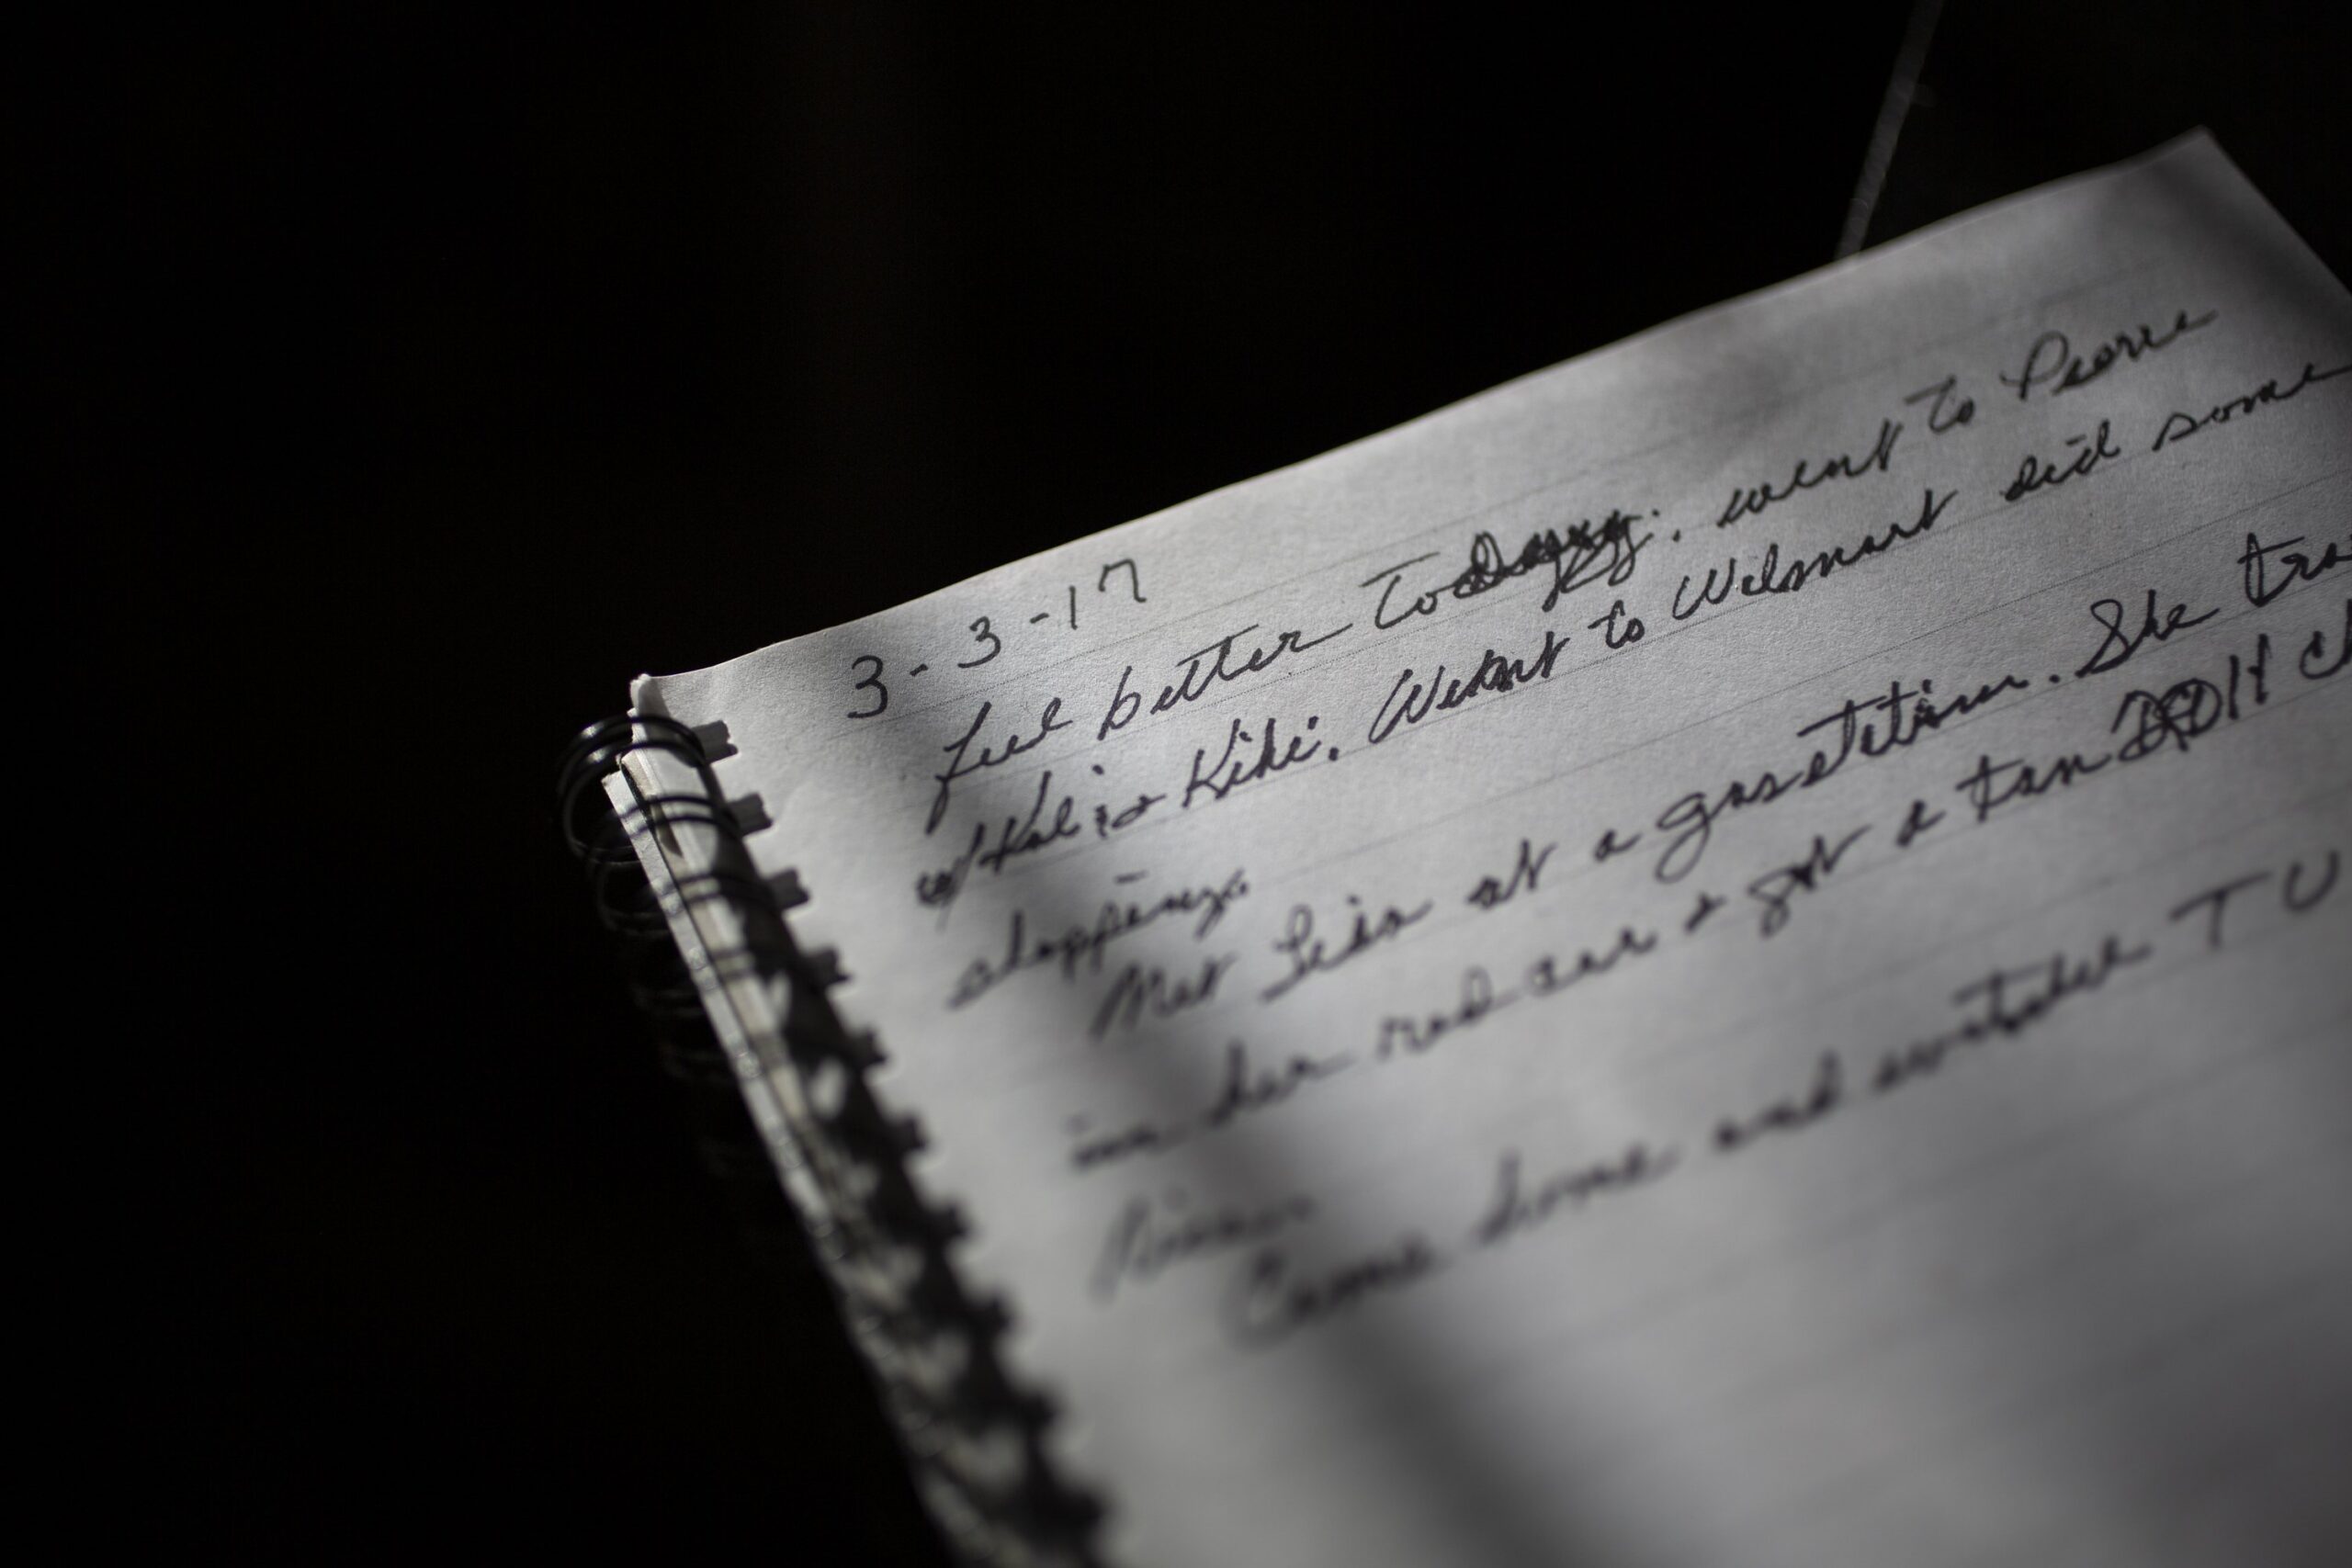 3-3-17
feel better today. went to Pierre
w/ Kali & Kiki. Went to Walmart did some
shopping.
Met Lisa at a gas station. She tra
in her red car & got a tan 2011 C
Came home and watched TV